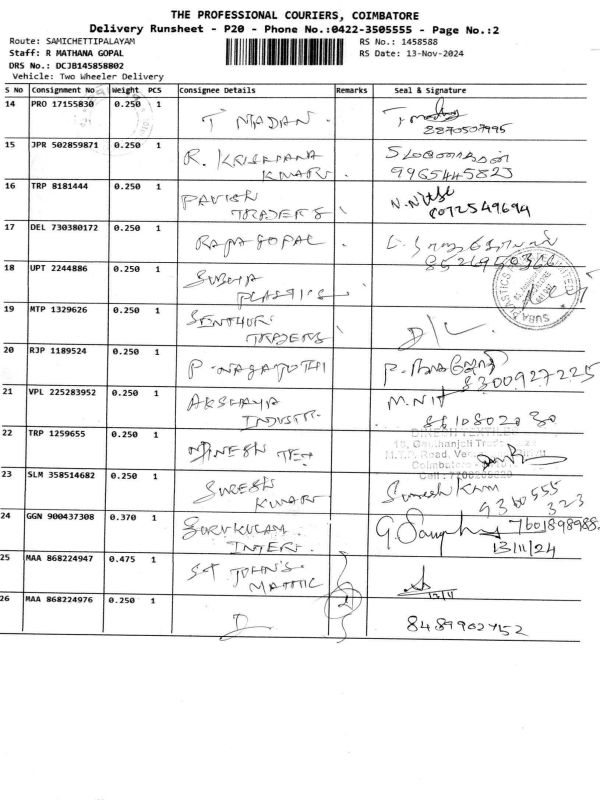 THE PROFESSIONAL COURIERS, COIMBATORE
Delivery Runsheet - P20 - Phone No.:0422-3505555 - Page No.:2
Route: SAMICHETTIPALAYAM
RS No.: 1458588
Staff: R MATHANA GOPAL
RS Date: 13-Nov-2024
DRS No.: DCJB145858802
Vehicle: Two Wheeler Delivery
S No Consignment No Weight PCS Consignee Details Remarks Seal & Signature
14 PRO 17155830 0.250 1 T MADAN.
8870507995
15 JPR 502859871 0.250 1 R. KRISHNA
KMAR
9965445823
16 TRP 8181444 0.250 1 PAVISH
TRADERS
17 DEL 730380172 0.250 1 RAJA GOPAL
18 UPT 2244886 0.250 1 SUBHA
PLASTICS
19 MTP 1329626 0.250 1 SENTHUR
TRADERS
D/C
20 RJP 1189524 0.250 1 P. NAGAJOTHI
8300927225
21 VPL 225283952 0.250 1 AKSHAYA
INDUSTR.
M.NIT
22 TRP 1259655 0.250 1 DINESH TEX
DINESH TEXTILES
Coimbatore
23 SLM 358514682 0.250 1 SURESH
KUMAR
Suresh Kum
9360555
323
24 GGN 900437308 0.370 1 GURUKULAM
INTER.
7601898988
13/11/24
25 MAA 868224947 0.475 1 ST JOHN'S
MATRIC
13/11
26 MAA 868224976 0.250 1 D
8489902752